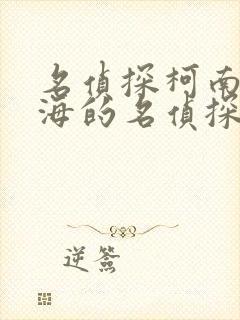 名侦探柯南
海的名侦探
逆簽